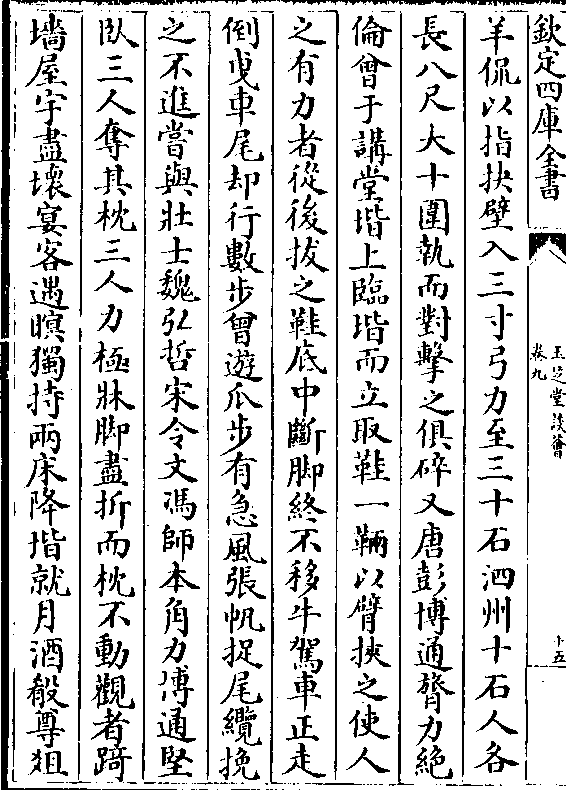 欽定四庫全書
玉芝堂談薈
卷九
十五
羊侃以指抉壁入三寸弓力至三十石泗州十石人各
長八尺大十圍執而對擊之俱碎又唐彭博通膂力絶
倫曾于講堂堦上臨堦而立取鞋一輛以臂挾之使人
之有力者從後拔之鞋底中斷脚終不移牛駕車正走
倒曵車尾却行數步曾遊瓜步有急風張帆捉尾纜挽
之不進嘗與壯士魏弘哲宋令文馮師本角力博通堅
臥三人奪其枕三人力極牀脚盡折而枕不動觀者踦
墻屋宇盡壊宴客遇暝獨持兩床降堦就月酒殽尊俎